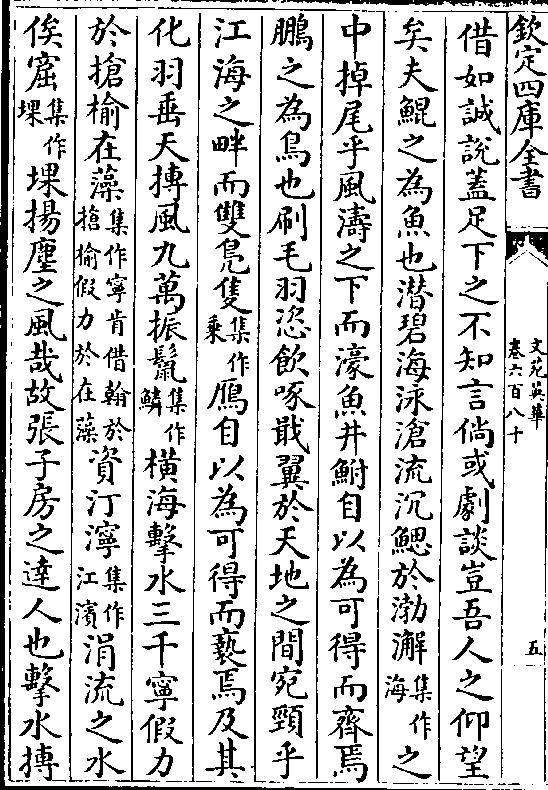 欽定四庫全書
文苑英華
卷六百八十
五
借如誠說蓋足下之不知言倘或劇談豈吾人之仰望
矣夫鯤之為魚也潛碧海泳滄流沉鰓於渤澥集作海之
中掉尾乎風濤之下而濠魚井鮒自以為可得而齊焉
鵬之為鳥也刷毛羽恣飲啄戢翼於天地之間宛頸乎
江海之畔而雙鳧隻集作乘鴈自以為可得而褻焉及其
化羽垂天摶風九萬振鬛集作鱗橫海擊水三千寧假力
於搶榆在藻集作寧肯借翰於搶榆假力於在藻資汀濘集作江濱涓流之水
俟窟集作堁堁揚塵之風哉故張子房之達人也擊水摶